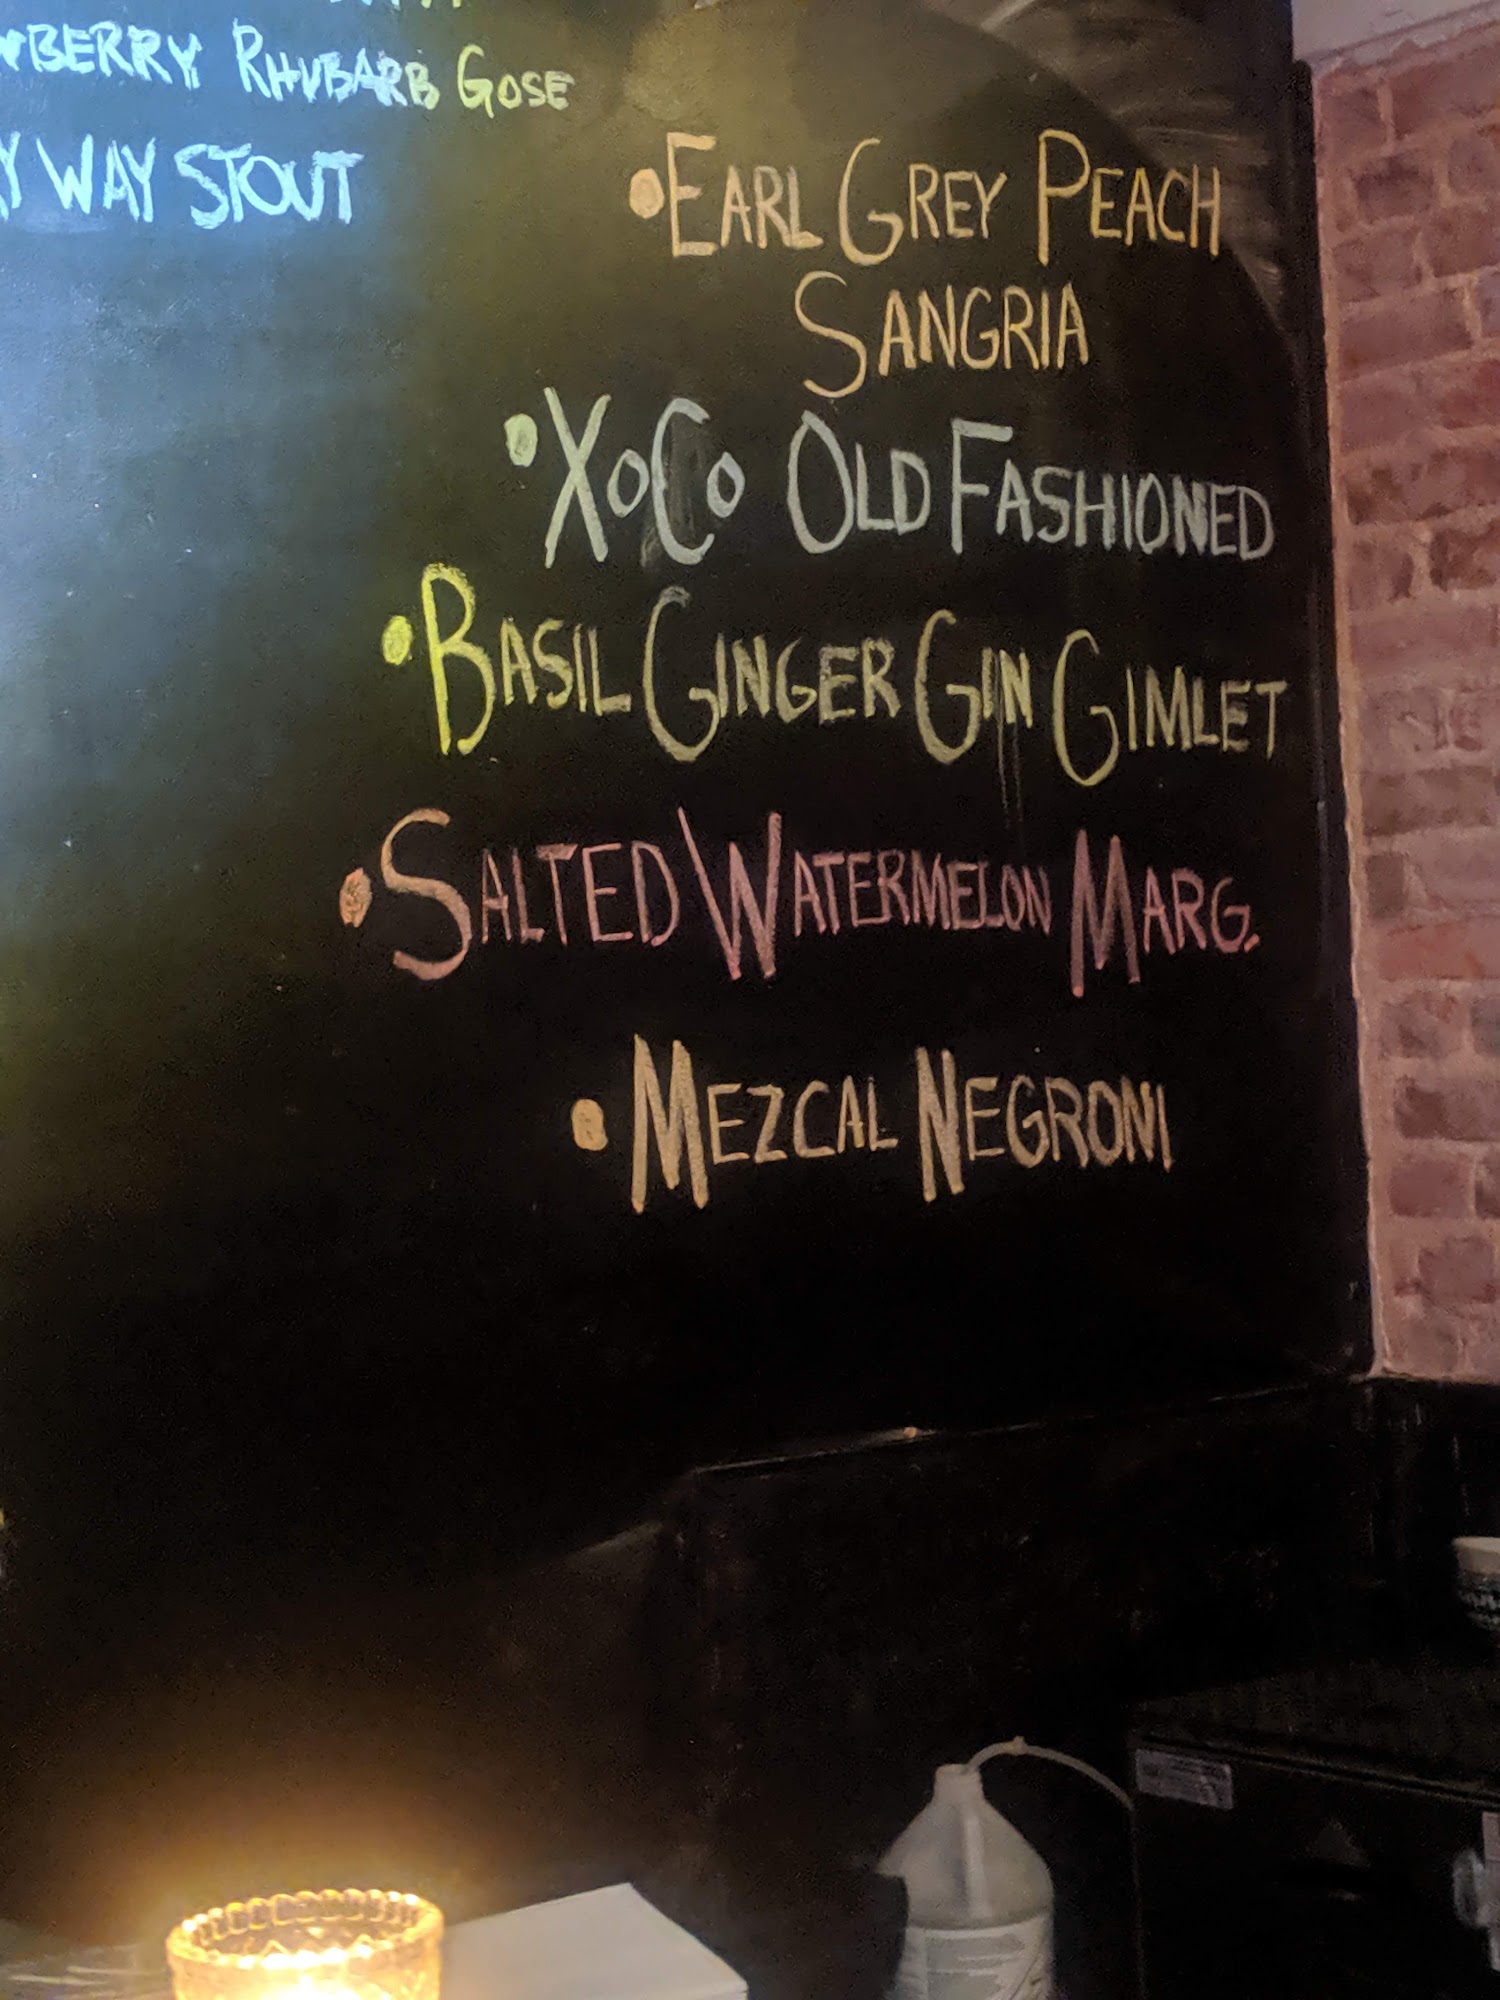 RHUBARB GOSE
WAY STOUT
•EARL GREY PEACH
SANGRIA
•XOCO OLD FASHIONED
•BASIL GINGER GIN GIMLET
•SALTED WATERMELON MARG.
•MEZCAL NEGRONI